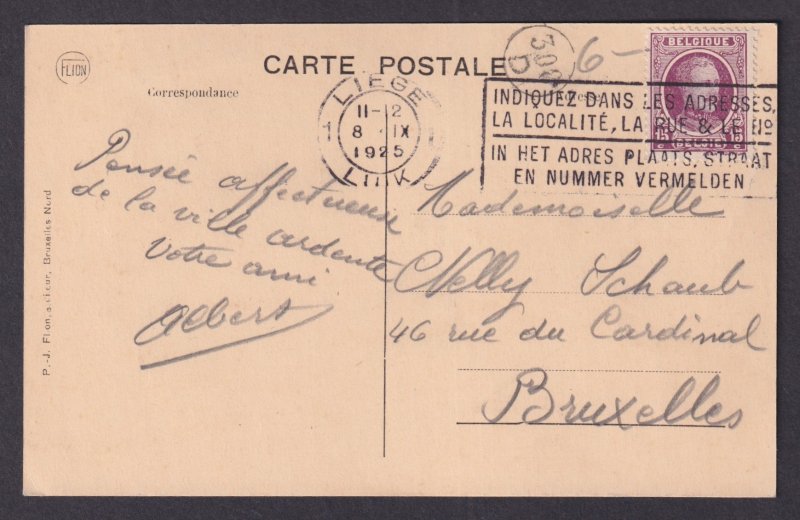 FLION
CARTE POSTALE
Correspondance
LIEGE
1 1
11-12
8 IX
1925
LUIK
300
D
6-
BELGIQUE
15 15
BELGIE
INDIQUEZ DANS LES ADRESSES,
LA LOCALITÉ, LA RUE & LE No
IN HET ADRES PLAATS, STRAAT
EN NUMMER VERMELDEN
Pensée affectueuse
de la ville ardente
Votre ami
Albert
Mademoiselle
Nelly Schaub
46 rue du Cardinal
Bruxelles
P.-J. Flion, editeur, Bruxelles Nord